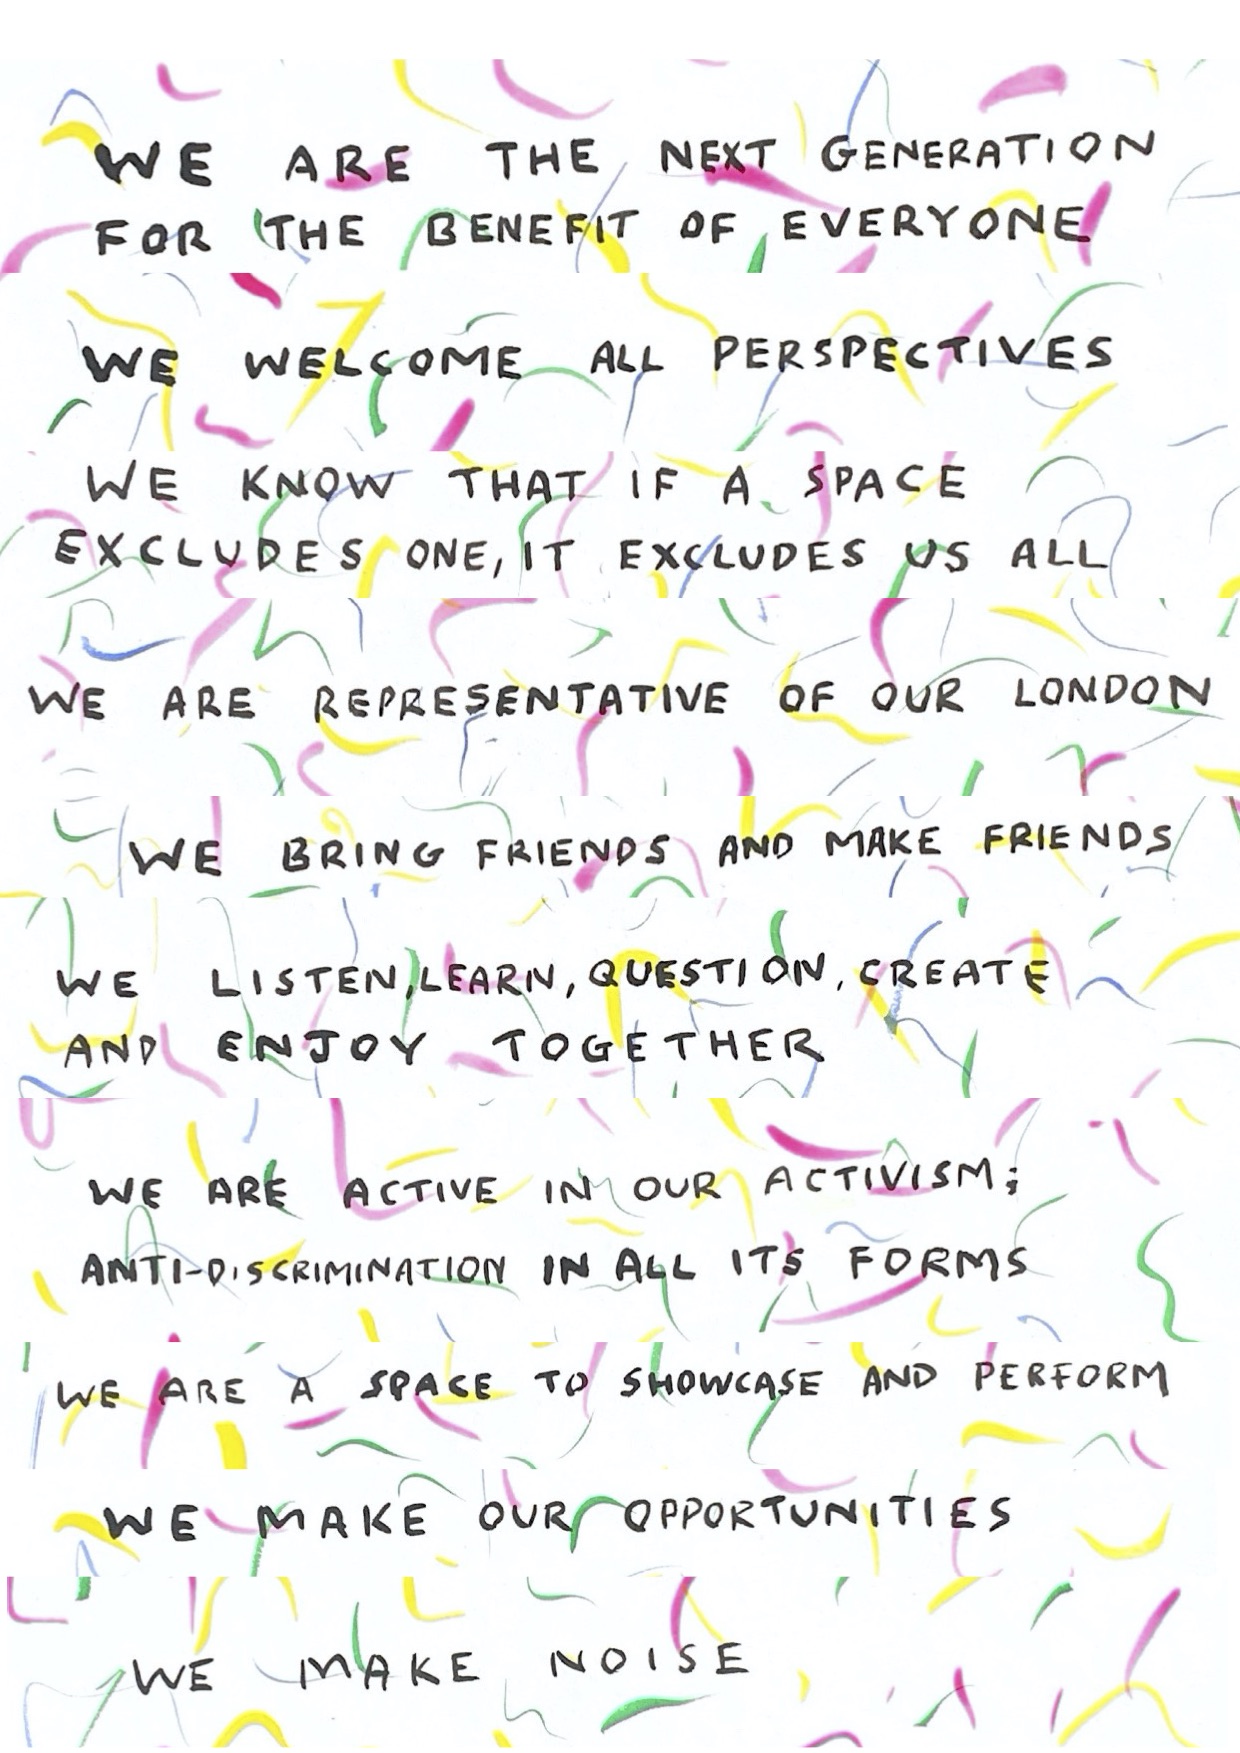 WE ARE THE NEXT GENERATION
FOR THE BENEFIT OF EVERYONE
WE WELCOME ALL PERSPECTIVES
WE KNOW THAT IF A SPACE
EXCLUDES ONE, IT EXCLUDES US ALL
WE ARE REPRESENTATIVE OF OUR LONDON
WE BRING FRIENDS AND MAKE FRIENDS
WE LISTEN, LEARN, QUESTION, CREATE
AND ENJOY TOGETHER
WE ARE ACTIVE IN OUR ACTIVISM;
ANTI-DISCRIMINATION IN ALL ITS FORMS
WE ARE A SPACE TO SHOWCASE AND PERFORM
WE MAKE OUR OPPORTUNITIES
WE MAKE NOISE